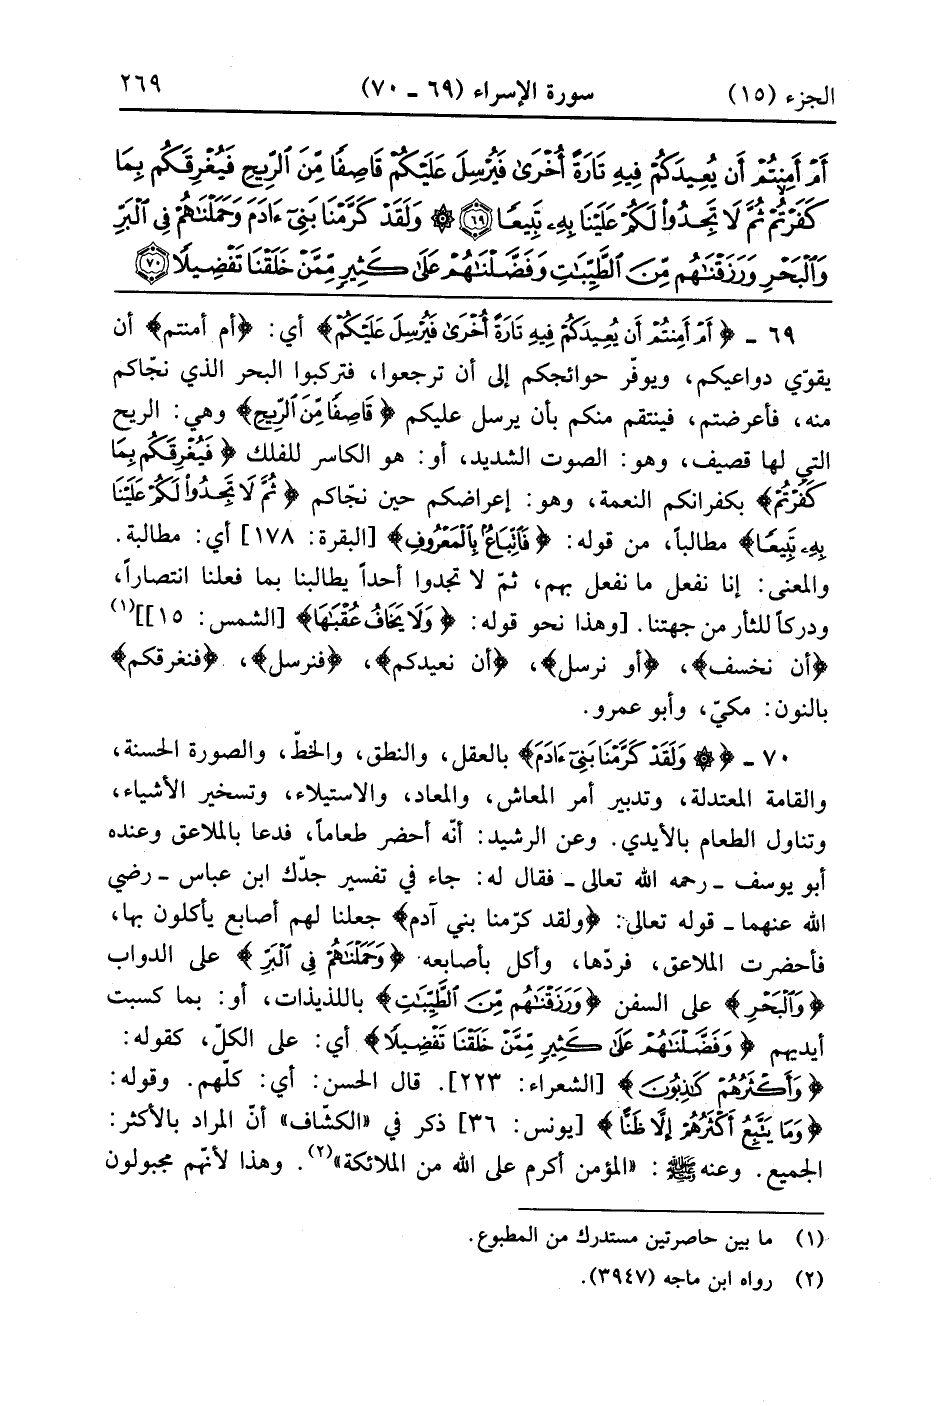 الجزء (١٥) سورة الإسراء (٦٩ - ٧٠) ٢٦٩
أَمْ أَمِنتُمْ أَن يُعِيدَكُمْ فِيهِ تَارَةً أُخْرَىٰ فَيُرْسِلَ عَلَيْكُمْ قَاصِفًا مِّنَ الرِّيحِ فَيُغْرِقَكُم بِمَا
كَفَرْتُمْ ثُمَّ لَا تَجِدُوا لَكُمْ عَلَيْنَا بِهِۦ تَبِيعًا ٦٩ ۞ وَلَقَدْ كَرَّمْنَا بَنِىٓ ءَادَمَ وَحَمَلْنَٰهُمْ فِى الْبَرِّ
وَالْبَحْرِ وَرَزَقْنَٰهُم مِّنَ الطَّيِّبَٰتِ وَفَضَّلْنَٰهُمْ عَلَىٰ كَثِيرٍ مِّمَّنْ خَلَقْنَا تَفْضِيلًا ٧٠
٦٩ - ﴿أَمْ أَمِنتُمْ أَن يُعِيدَكُمْ فِيهِ تَارَةً أُخْرَىٰ فَيُرْسِلَ عَلَيْكُمْ﴾ أي: ﴿أم أمنتم﴾ أن
يقوّي دواعيكم، ويوفّر حوائجكم إلى أن ترجعوا، فتركبوا البحر الذي نجّاكم
منه، فأعرضتم، فينتقم منكم بأن يرسل عليكم ﴿قَاصِفًا مِّنَ الرِّيحِ﴾ وهي: الريح
التي لها قصيف، وهو: الصوت الشديد، أو: هو الكاسر للفلك ﴿فَيُغْرِقَكُم بِمَا
كَفَرْتُمْ﴾ بكفرانكم النعمة، وهو: إعراضكم حين نجّاكم ﴿ثُمَّ لَا تَجِدُوا لَكُمْ عَلَيْنَا
بِهِۦ تَبِيعًا﴾ مطالباً، من قوله: ﴿فَاتِّبَاعٌ بِالْمَعْرُوفِ﴾ [البقرة: ١٧٨] أي: مطالبة.
والمعنى: إنا نفعل ما نفعل بهم، ثمّ لا تجدوا أحداً يطالبنا بما فعلنا انتصاراً،
ودركاً للثأر من جهتنا. [وهذا نحو قوله: ﴿وَلَا يَخَافُ عُقْبَٰهَا﴾ [الشمس: ١٥]](١)
﴿أن نخسف﴾، ﴿أو نرسل﴾، ﴿أن نعيدكم﴾، ﴿فنرسل﴾، ﴿فنغرقكم﴾
بالنون: مكيّ، وأبو عمرو.
٧٠ - ﴿۞ وَلَقَدْ كَرَّمْنَا بَنِىٓ ءَادَمَ﴾ بالعقل، والنطق، والخطّ، والصورة الحسنة،
والقامة المعتدلة، وتدبير أمر المعاش، والمعاد، والاستيلاء، وتسخير الأشياء،
وتناول الطعام بالأيدي. وعن الرشيد: أنّه أحضر طعاماً، فدعا بالملاعق وعنده
أبو يوسف - رحمه الله تعالى - فقال له: جاء في تفسير جدّك ابن عباس - رضي
الله عنهما - قوله تعالى: ﴿ولقد كرّمنا بني آدم﴾ جعلنا لهم أصابع يأكلون بها،
فأحضرت الملاعق، فردّها، وأكل بأصابعه ﴿وَحَمَلْنَٰهُمْ فِى الْبَرِّ﴾ على الدواب
﴿وَالْبَحْرِ﴾ على السفن ﴿وَرَزَقْنَٰهُم مِّنَ الطَّيِّبَٰتِ﴾ باللذيذات، أو: بما كسبت
أيديهم ﴿وَفَضَّلْنَٰهُمْ عَلَىٰ كَثِيرٍ مِّمَّنْ خَلَقْنَا تَفْضِيلًا﴾ أي: على الكلّ، كقوله:
﴿وَأَكْثَرُهُمْ كَٰذِبُونَ﴾ [الشعراء: ٢٢٣]. قال الحسن: أي: كلّهم. وقوله:
﴿وَمَا يَتَّبِعُ أَكْثَرُهُمْ إِلَّا ظَنًّا﴾ [يونس: ٣٦] ذكر في «الكشّاف» أنّ المراد بالأكثر:
الجميع. وعنه ﷺ: «المؤمن أكرم على الله من الملائكة»(٢). وهذا لأنّهم مجبولون
(١) ما بين حاصرتين مستدرك من المطبوع.
(٢) رواه ابن ماجه (٣٩٤٧).